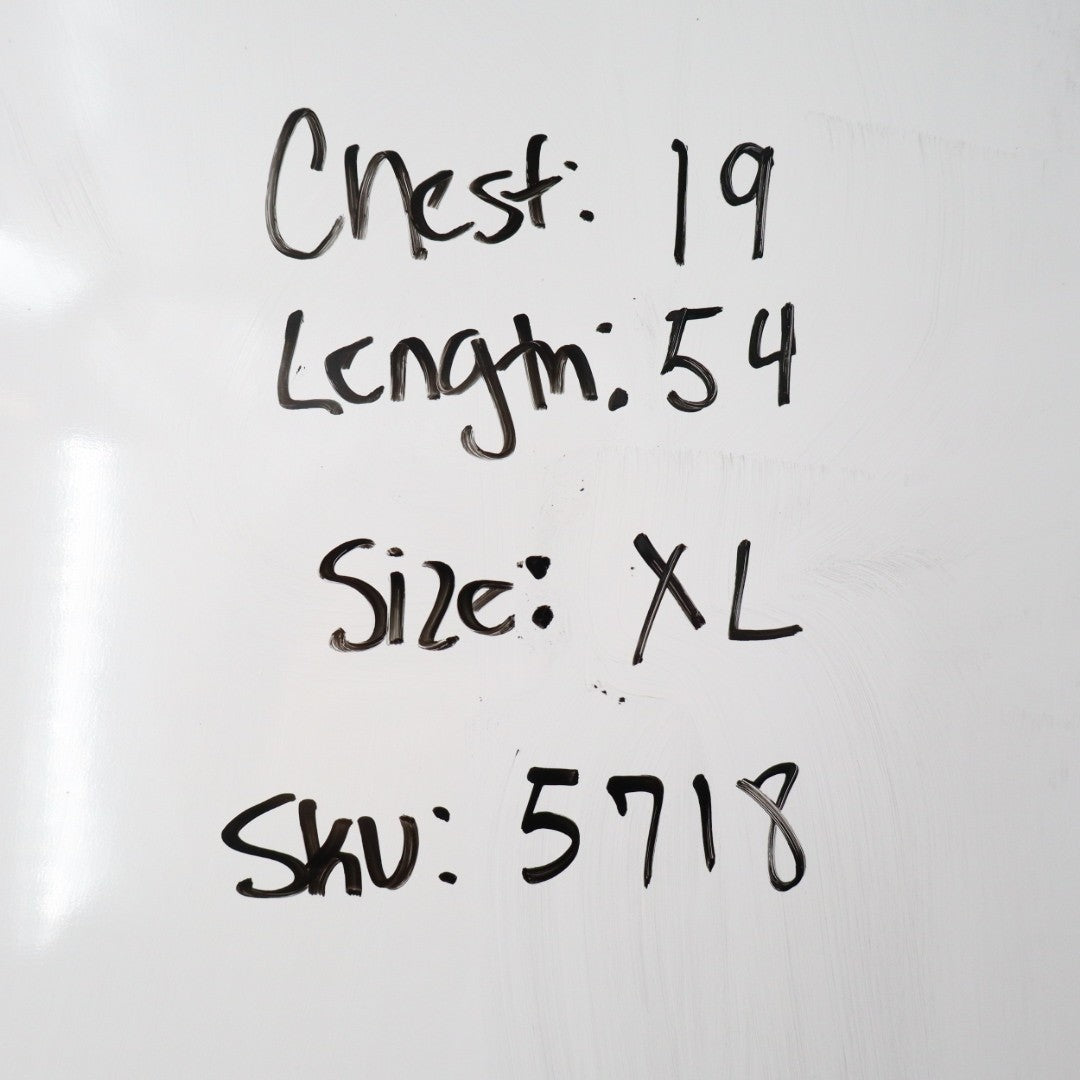 Chest: 19
Length: 54
Size: XL
Sku: 5718